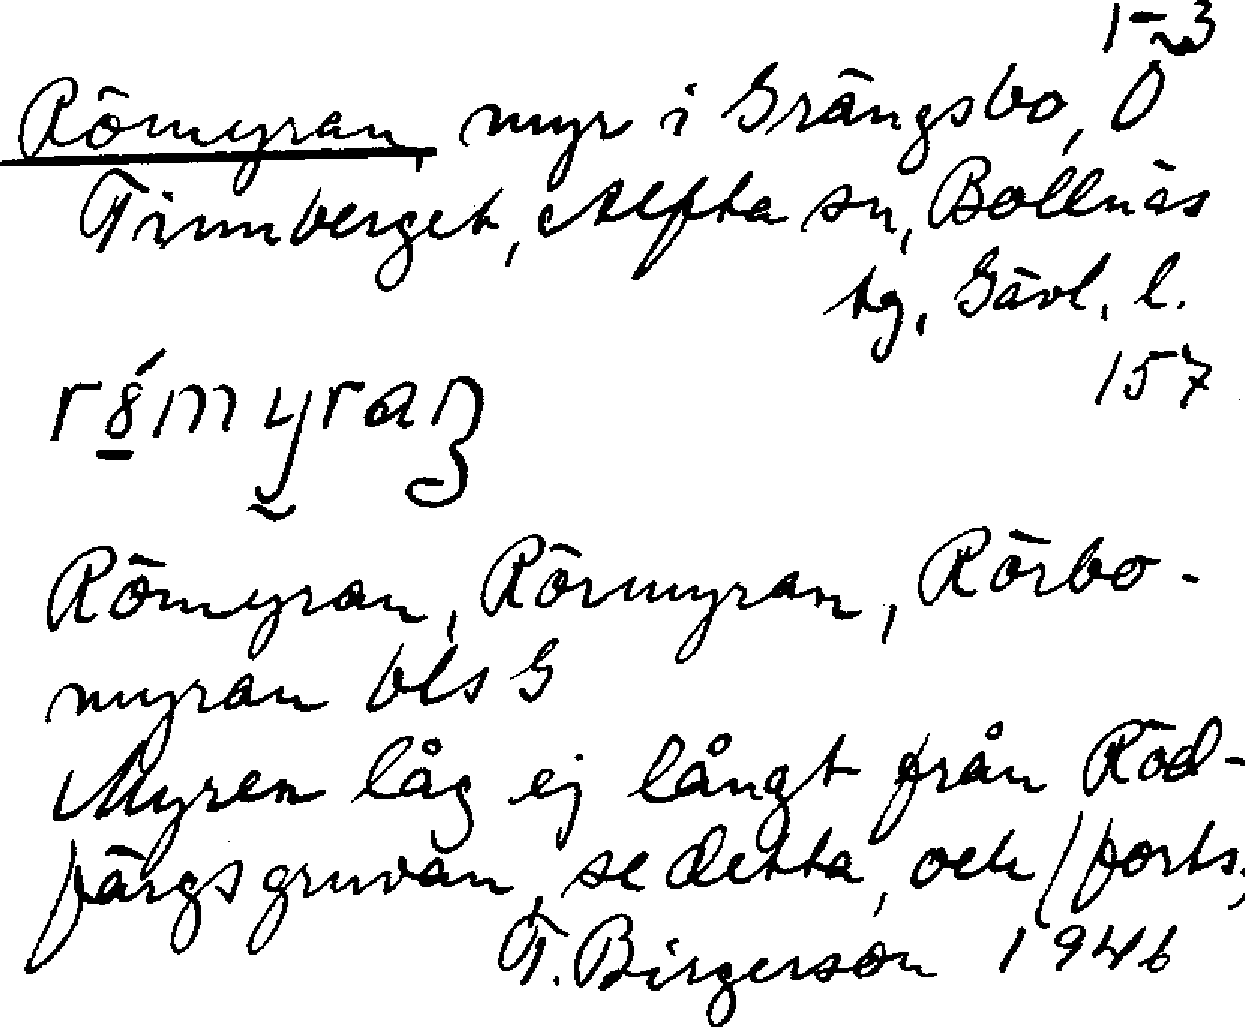 1-3
Römyran, myr i Grängsbo, Ö
Finnberget, Alfta sn, Bollnäs
tg, Gävl. l.
157
Römyran, Rörmyran, Rörbo-
myran bls G
Myren låg ej långt från Röd-
färgsgruvan, se detta, och (forts.
T. Birgerson 1946